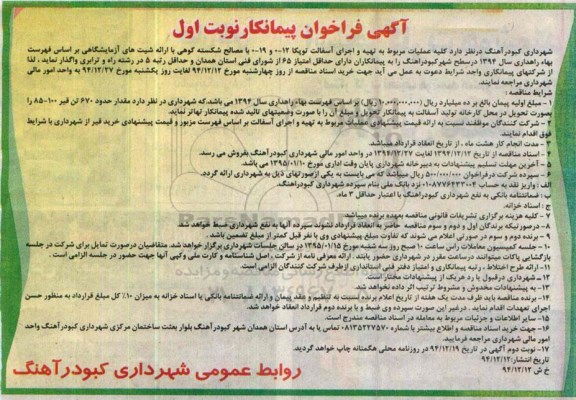 آگهی فراخوان پیمانکار نوبت اول
شهرداری کبودرآهنگ درنظر دارد کلیه عملیات مربوط به تهیه و اجرای آسفالت توپکا ۱۲-۰ و ۱۹-۰ با مصالح شکسته کوهی با ارائه شیت های آزمایشگاهی بر اساس فهرست
بهاء راهداری سال ۱۳۹۴ درسطح شهرکبودراهنگ را به پیمانکاران دارای حداقل امتیاز ۶۵ از شورای فنی استان همدان و حداقل رتبه ۵ در رشته راه و ترابری واگذار نماید ، لذا
از شرکتهای پیمانکاری واجد شرایط دعوت به عمل می آید جهت خرید اسناد مناقصه از روز چهارشنبه مورخ ۹۴/۱۲/۱۲ لغایت روز یکشنبه مورخ ۹۴/۱۲/۲۷ به واحد امور مالی
شهرداری مراجعه نمایند.
شرایط مناقصه :
۱ - مبلغ اولیه پیمان بالغ بر ده میلیارد ریال (۱۰,۰۰۰,۰۰۰,۰۰۰ ریال) بر اساس فهرست بهاء راهداری سال ۱۳۹۴ می باشد،که شهرداری در نظر دارد مقدار حدود ۶۷۰ تن قیر ۱۰۰-۸۵ را
بصورت تحویل در محل کارخانه تولید آسفالت به پیمانکار تحویل و مبلغ آن را با صورت وضعیتهای تائید شده پیمانکار تهاتر نماید.
۲ - شرکت کنندگان موظفند نسبت به ارائه قیمت پیشنهادی عملیات مربوط به تهیه و اجرای آسفالت بر اساس فهرست مزبور و قیمت پیشنهادی خرید قیر از شهرداری با شرایط
فوق اقدام نمایند.
۳ - مدت انجام کار هشت ماه . از تاریخ انعقاد قرارداد میباشد.
۴ - اسناد مناقصه از تاریخ ۱۳۹۴/۱۲/۱۲ لغایت ۱۳۹۴/۱۲/۲۷ در واحد امور مالی شهرداری کبودرآهنگ بفروش می رسد.
۵ - آخرین مهلت تسلیم پیشنهادات به دبیرخانه شهرداری پایان وقت اداری مورخ ۱۳۹۵/۰۱/۱۰ می باشد.
۶ - سپرده شرکت درفراخوان ۵۰۰/۰۰۰/۰۰۰ ریال میباشد که می بایست به یکی ازصورتهای ذیل به شهرداری ارائه گردد.
الف : واریز نقد به حساب ۰۱۰۸۷۷۶۴۳۳۰۰۴ نزد بانک ملی بنام سپرده شهرداری کبودرآهنگ.
ب : ضمانتنامه بانکی به نفع شهرداری کبودراهنگ با اعتبار حداقل ۳ ماه.
ج : اسناد خزانه.
۷ - کلیه هزینه برگزاری تشریفات قانونی مناقصه بعهده برنده میباشد.
۸ - درصورتیکه برندگان اول و دوم و سوم مناقصه حاضر به انعقاد قرارداد نشوند سپرده آنها به نفع شهرداری ضبط خواهد شد.
۹ - برنده دوم و سوم در صورتی اعلام می شوند که تفاوت مبلغ پیشنهادی وی با نفر قبل کمتر از مبلغ تضمین باشد.
۱۰ - جلسه کمیسیون معاملات راس ساعت ۱۰ صبح روز سه شنبه مورخ ۱۳۹۵/۰۱/۱۵ در سالن جلسات شهرداری برگزار خواهد شد. متقاضیان درصورت تمایل برای شرکت در جلسه
بازگشایی پاکات میتوانند درساعت مقرر در شهرداری حضور یابند . ارائه معرفی نامه از شرکت . اصل شناسنامه و کارت ملی وکپی آنها جهت حضور در جلسه الزامی است .
۱۱ - ارائه طرح اختلاط ، رتبه پیمانکاری و امتیاز دفتر فنی استانداری ازطرف شرکت کنندگان الزامی است.
۱۲ - شهرداری درقبول یا رد هریک از پیشنهادات مختار است.
۱۳ - به پیشنهادات مخدوش و مشروط ترتیب اثر داده نخواهد شد.
۱۴ - برنده مناقصه باید ظرف مدت یک هفته از تاریخ اعلام برنده نسبت به تنظیم و عقد پیمان و ارائه ضمانتنامه بانکی یا اسناد خزانه به میزان ۱۰٪ کل مبلغ قرارداد به منظور حسن
اجرای تعهدات اقدام نماید . درغیر این صورت سپرده وی ضبط و با برنده دوم قرارداد انعقاد خواهد شد.
۱۵ - سایر اطلاعات و جزئیات مربوط به معامله در اسناد مناقصه مندرج است.
۱۶ - جهت خرید اسناد مناقصه و اطلاع بیشتر با شماره ۰۸۱۳۵۲۲۷۵۷۰ تماس یا به آدرس استان همدان شهر کبودرآهنگ بلوار بعثت ساختمان مرکزی شهرداری کبودرآهنگ واحد
امور مالی شهرداری مراجعه فرمایید.
۱۷ - نوبت دوم آگهی در تاریخ ۹۴/۱۲/۱۹ در روزنامه محلی هگمتانه چاپ خواهد گردید.
تاریخ انتشار:۹۴/۱۲/۱۲
خ ش ۹۴/۱۲/۱۲
روابط عمومی شهرداری کبودرآهنگ